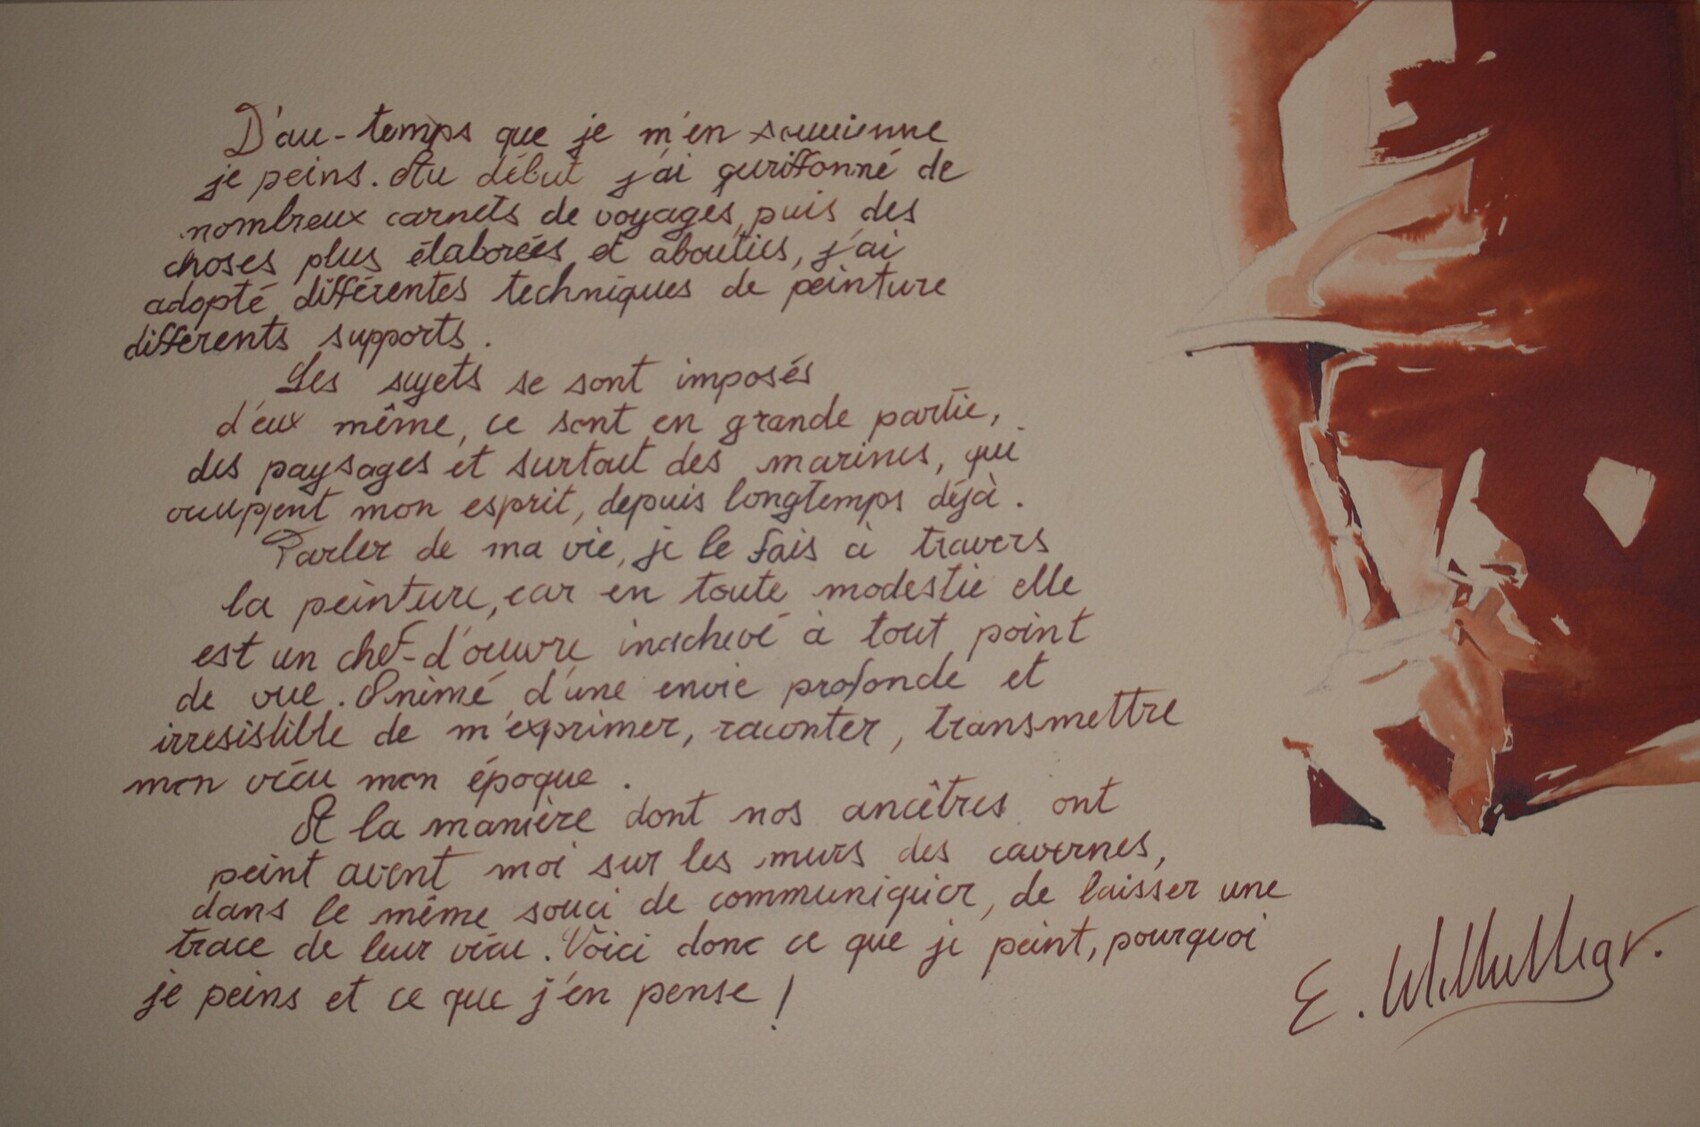 D'au-temps que je m'en souvienne
je peins. Au début j'ai griffonné de
nombreux carnets de voyages, puis des
choses plus élaborées et abouties, j'ai
adopté différentes techniques de peinture
différents supports.
Les sujets se sont imposés
d'eux même, ce sont en grande partie,
des paysages et surtout des marines, qui
occuppent mon esprit, depuis longtemps déjà.
Parler de ma vie, je le fais à travers
la peinture, car en toute modestie elle
est un chef-d'œuvre inachevé à tout point
de vue. Animé d'une envie profonde et
irresistible de m'exprimer, raconter, transmettre
mon vécu mon époque.
A la manière dont nos ancêtres ont
peint avent moi sur les murs des cavernes,
dans le même souci de communiquer, de laisser une
trace de leur vécu. Voici donc ce que je peint, pourquoi
je peins et ce que j'en pense !
E.